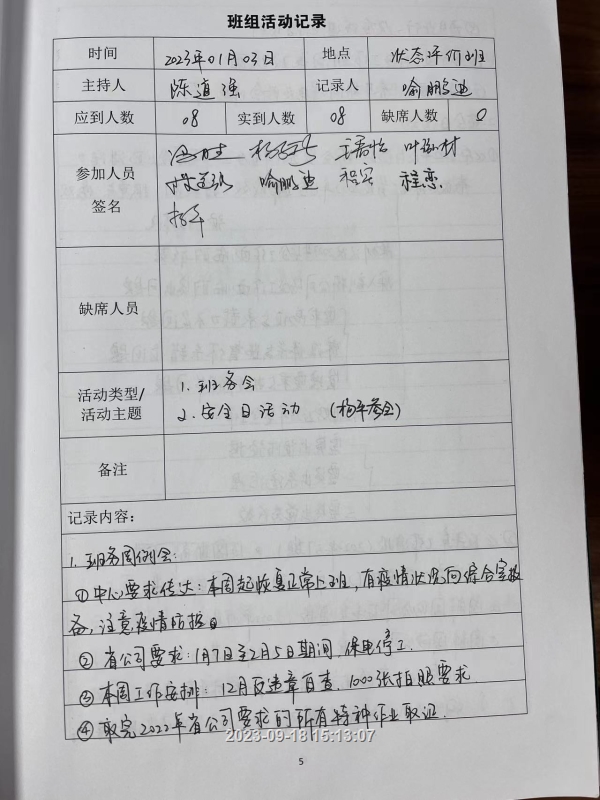 班组活动记录
时间 2023年01月03日 地点 状态评价班
主持人 陈道强 记录人 喻鹏迪
应到人数 08 实到人数 08 缺席人数 0
参加人员
签名
喻鹏迪 程实 程恋
杨平
缺席人员
活动类型/
活动主题
1. 班务会
2. 安全日活动 (杨平参会)
备注
记录内容:
1. 班务周例会:
①中心要求传达:本周起恢复正常上班,有疫情状况向综合室报
备,注意疫情防控
② 省公司要求:1月7日至2月5日期间,保电停工.
③ 本周工作安排:12月反违章自查,1000张拍照要求.
④ 取完2022年省公司要求的所有特种作业取证.
2023-09-18 15:13:07
5